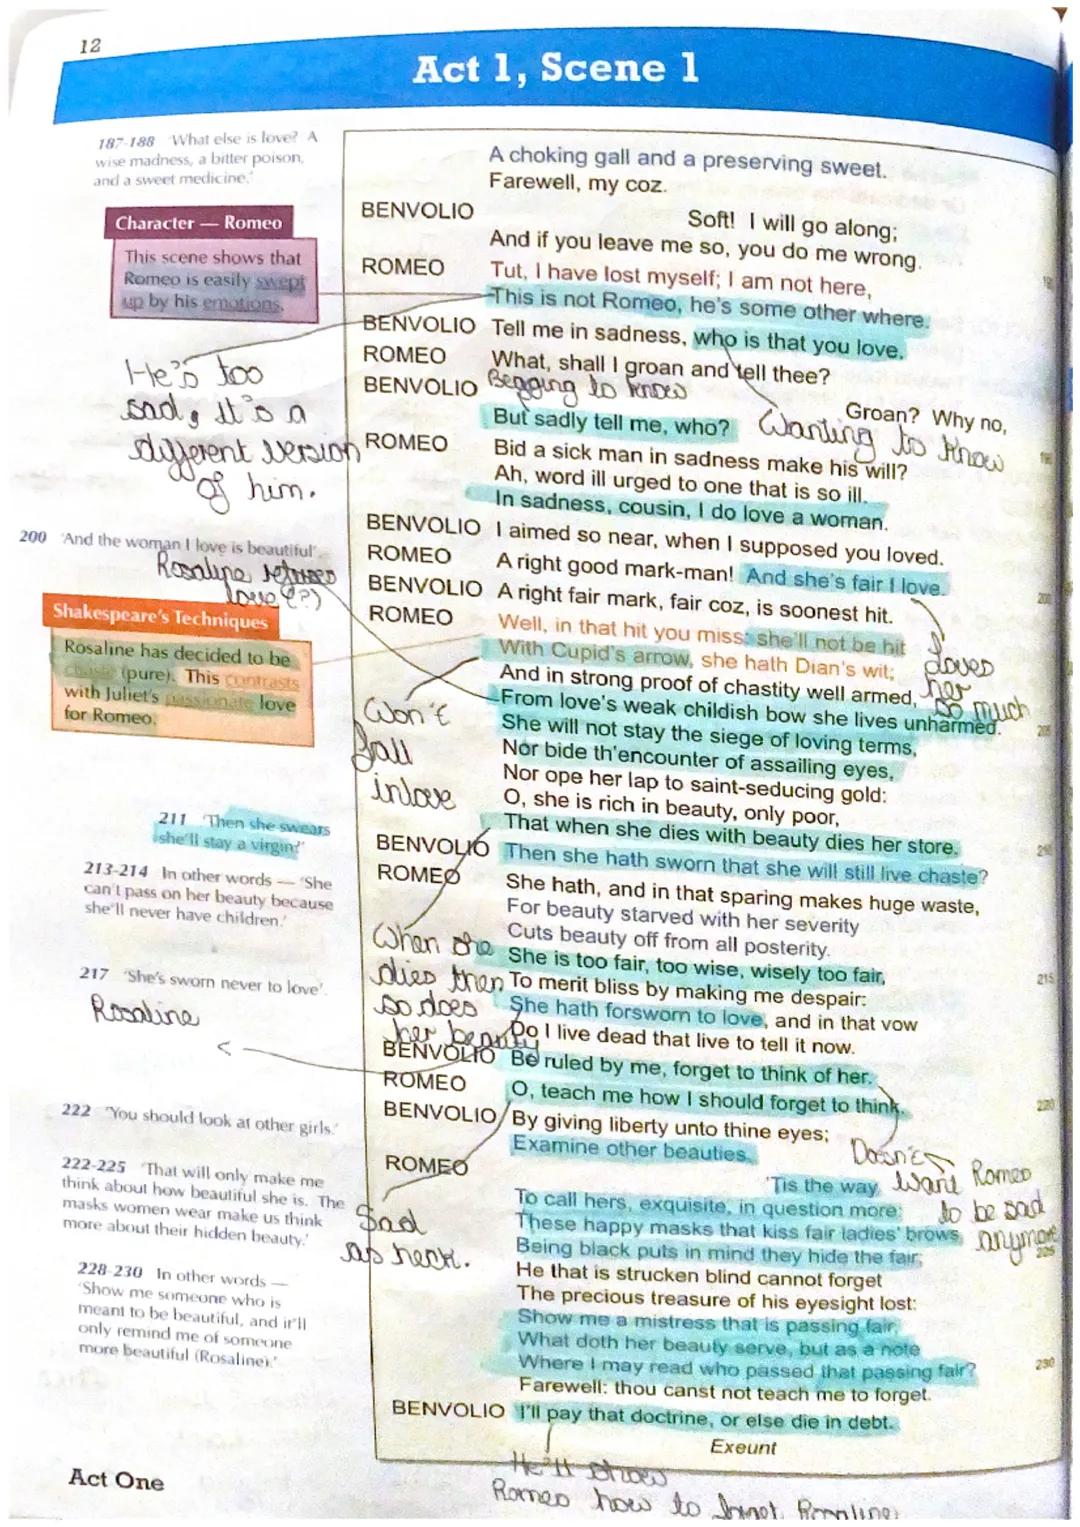 12
Act 1, Scene 1
187-188 'What else is love? A
wise madness, a bitter poison,
and a sweet medicine.'
Character — Romeo
This scene shows that
Romeo is easily swept
up by his emotions.
He's too
sad, it's a
different version
of him.
200 'And the woman I love is beautiful'
Rosalyne refuses
love (?)
Shakespeare's Techniques
Rosaline has decided to be
chaste (pure). This contrasts
with Juliet's passionate love
for Romeo.
Won't
fall
in love
211 'Then she swears
she'll stay a virgin?'
213-214 In other words — 'She
can't pass on her beauty because
she'll never have children.'
When she
dies then
so does
her beauty
217 'She's sworn never to love'.
Rosaline
222 'You should look at other girls.'
222-225 'That will only make me
think about how beautiful she is. The
masks women wear make us think
more about their hidden beauty.'
Sad
as heck.
228-230 In other words —
'Show me someone who is
meant to be beautiful, and it'll
only remind me of someone
more beautiful (Rosaline).'
Act One
A choking gall and a preserving sweet.
Farewell, my coz.
BENVOLIO Soft! I will go along;
And if you leave me so, you do me wrong.
ROMEO Tut, I have lost myself; I am not here,
This is not Romeo, he's some other where.
BENVOLIO Tell me in sadness, who is that you love.
ROMEO What, shall I groan and tell thee?
BENVOLIO Groan? Why no,
Begging to know
But sadly tell me, who?
Wanting to know
ROMEO Bid a sick man in sadness make his will?
Ah, word ill urged to one that is so ill.
In sadness, cousin, I do love a woman.
BENVOLIO I aimed so near, when I supposed you loved.
ROMEO A right good mark-man! And she's fair I love.
200
BENVOLIO A right fair mark, fair coz, is soonest hit.
ROMEO Well, in that hit you miss: she'll not be hit
With Cupid's arrow, she hath Dian's wit;
And in strong proof of chastity well armed,
loves
her
so much
From love's weak childish bow she lives unharmed.
205
She will not stay the siege of loving terms,
Nor bide th'encounter of assailing eyes,
Nor ope her lap to saint-seducing gold:
O, she is rich in beauty, only poor,
That when she dies with beauty dies her store.
210
BENVOLIO Then she hath sworn that she will still live chaste?
ROMEO She hath, and in that sparing makes huge waste,
For beauty starved with her severity
Cuts beauty off from all posterity.
She is too fair, too wise, wisely too fair,
215
To merit bliss by making me despair:
She hath forsworn to love, and in that vow
Do I live dead that live to tell it now.
BENVOLIO Be ruled by me, forget to think of her.
ROMEO O, teach me how I should forget to think.
220
BENVOLIO By giving liberty unto thine eyes;
Examine other beauties.
Doesn't
want Romeo
to be sad
anymore
ROMEO 'Tis the way
To call hers, exquisite, in question more:
These happy masks that kiss fair ladies' brows,
Being black puts in mind they hide the fair;
225
He that is strucken blind cannot forget
The precious treasure of his eyesight lost:
Show me a mistress that is passing fair,
What doth her beauty serve, but as a note
Where I may read who passed that passing fair?
230
Farewell: thou canst not teach me to forget.
BENVOLIO I'll pay that doctrine, or else die in debt.
Exeunt
He'll show
Romeo how to forget Rosaline